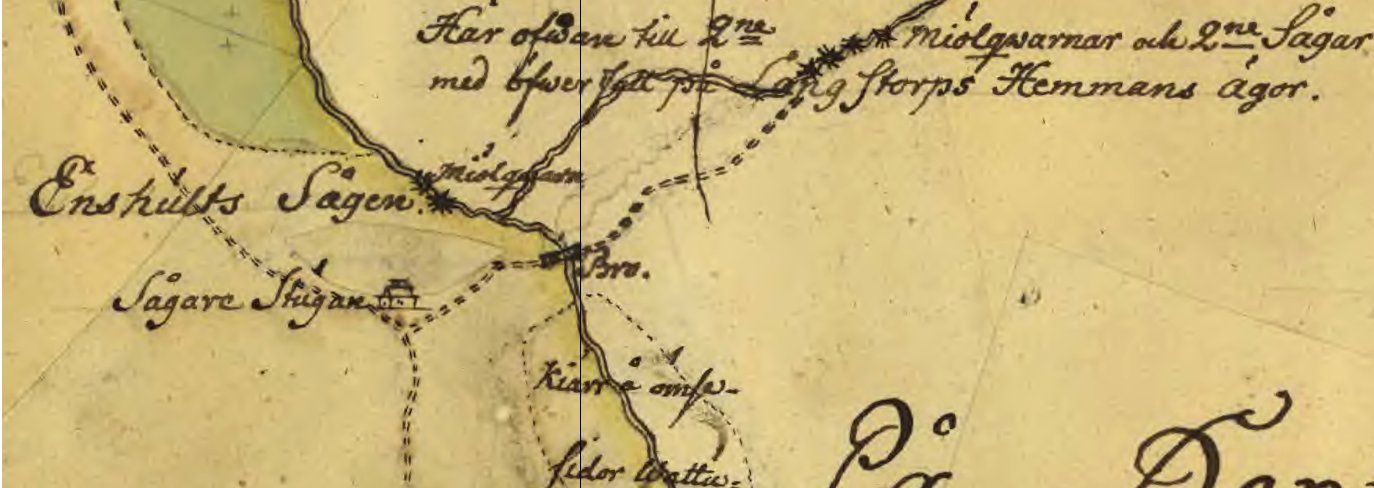 Här ofwan till 2ne Miölqwarnar och 2ne Sågar
med öfwer fall på Lång Storps Hemmans ägor.
Miölqwarn
Enshults Sågen.
Bro.
Sågare Stugan
Kiärr å omse-
sidor Wattu-
På